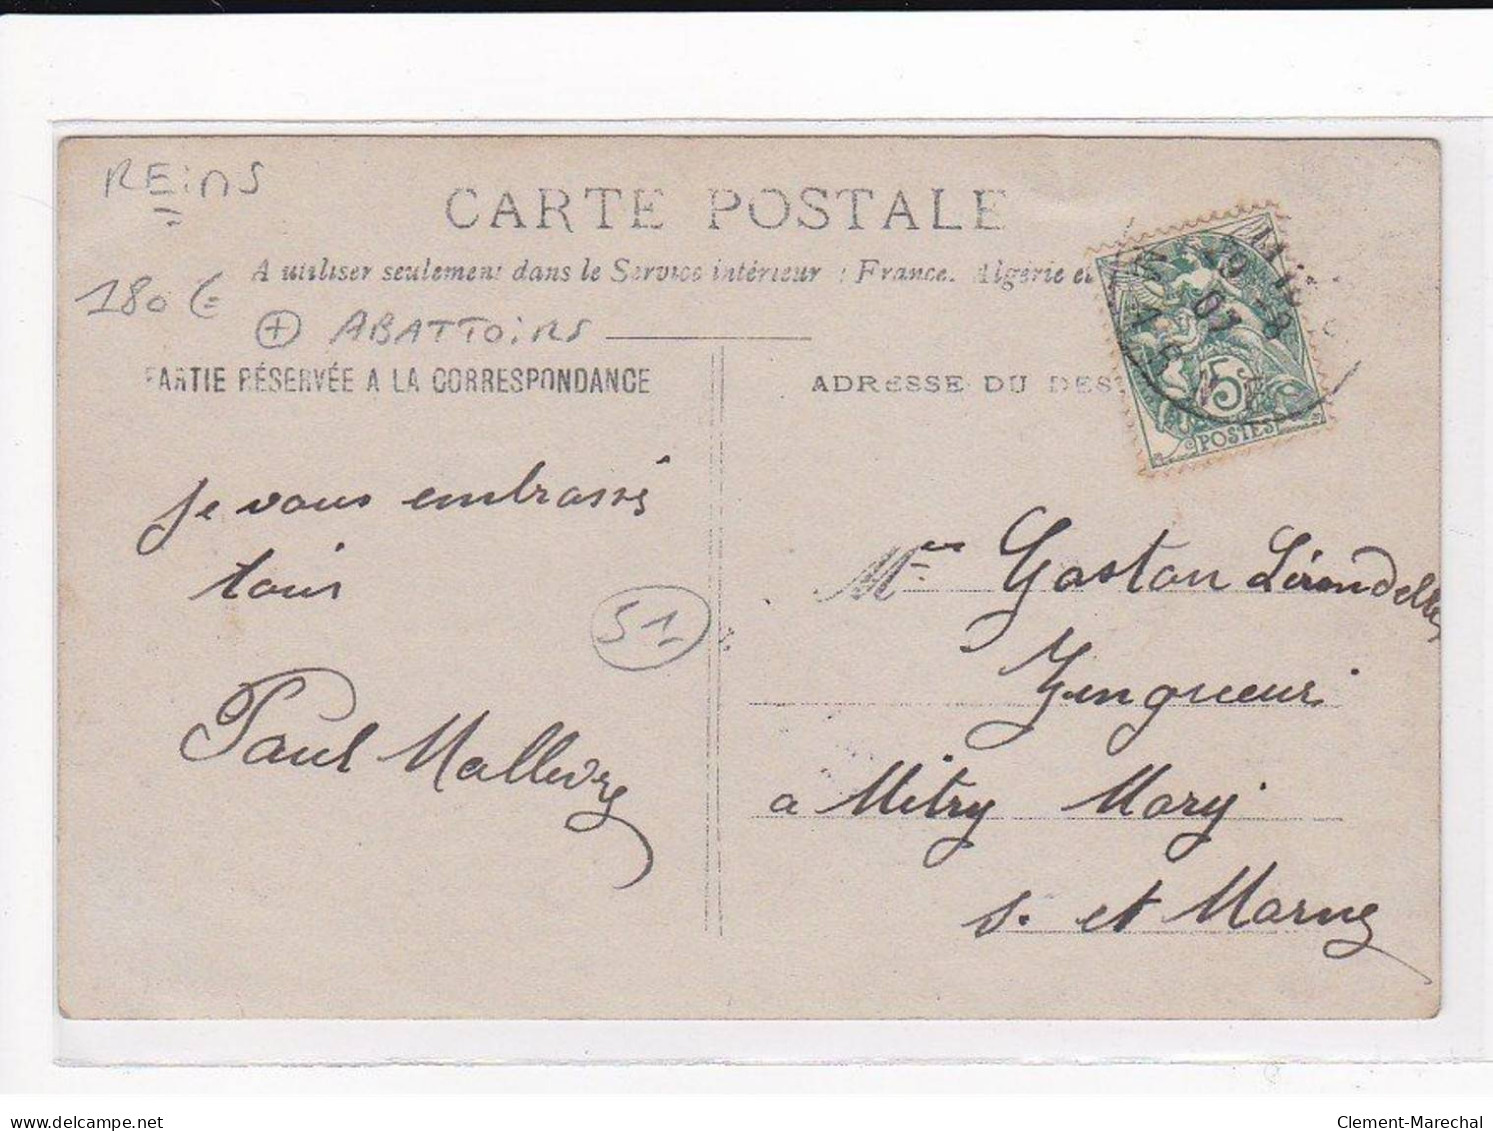 REiMS
CARTE POSTALE
A utiliser seulement dans le Service intérieur : France. Algérie et
180 €
+ ABATTOiRS
PARTIE RÉSERVÉE A LA CORRESPONDANCE
ADRESSE DU DES
5
POSTES
je vous embrasse
tous
51
Paul Mallevre
Mr Gaston
a Mitry Mory
S. et Marne
delcampe.net
Clement-Marechal